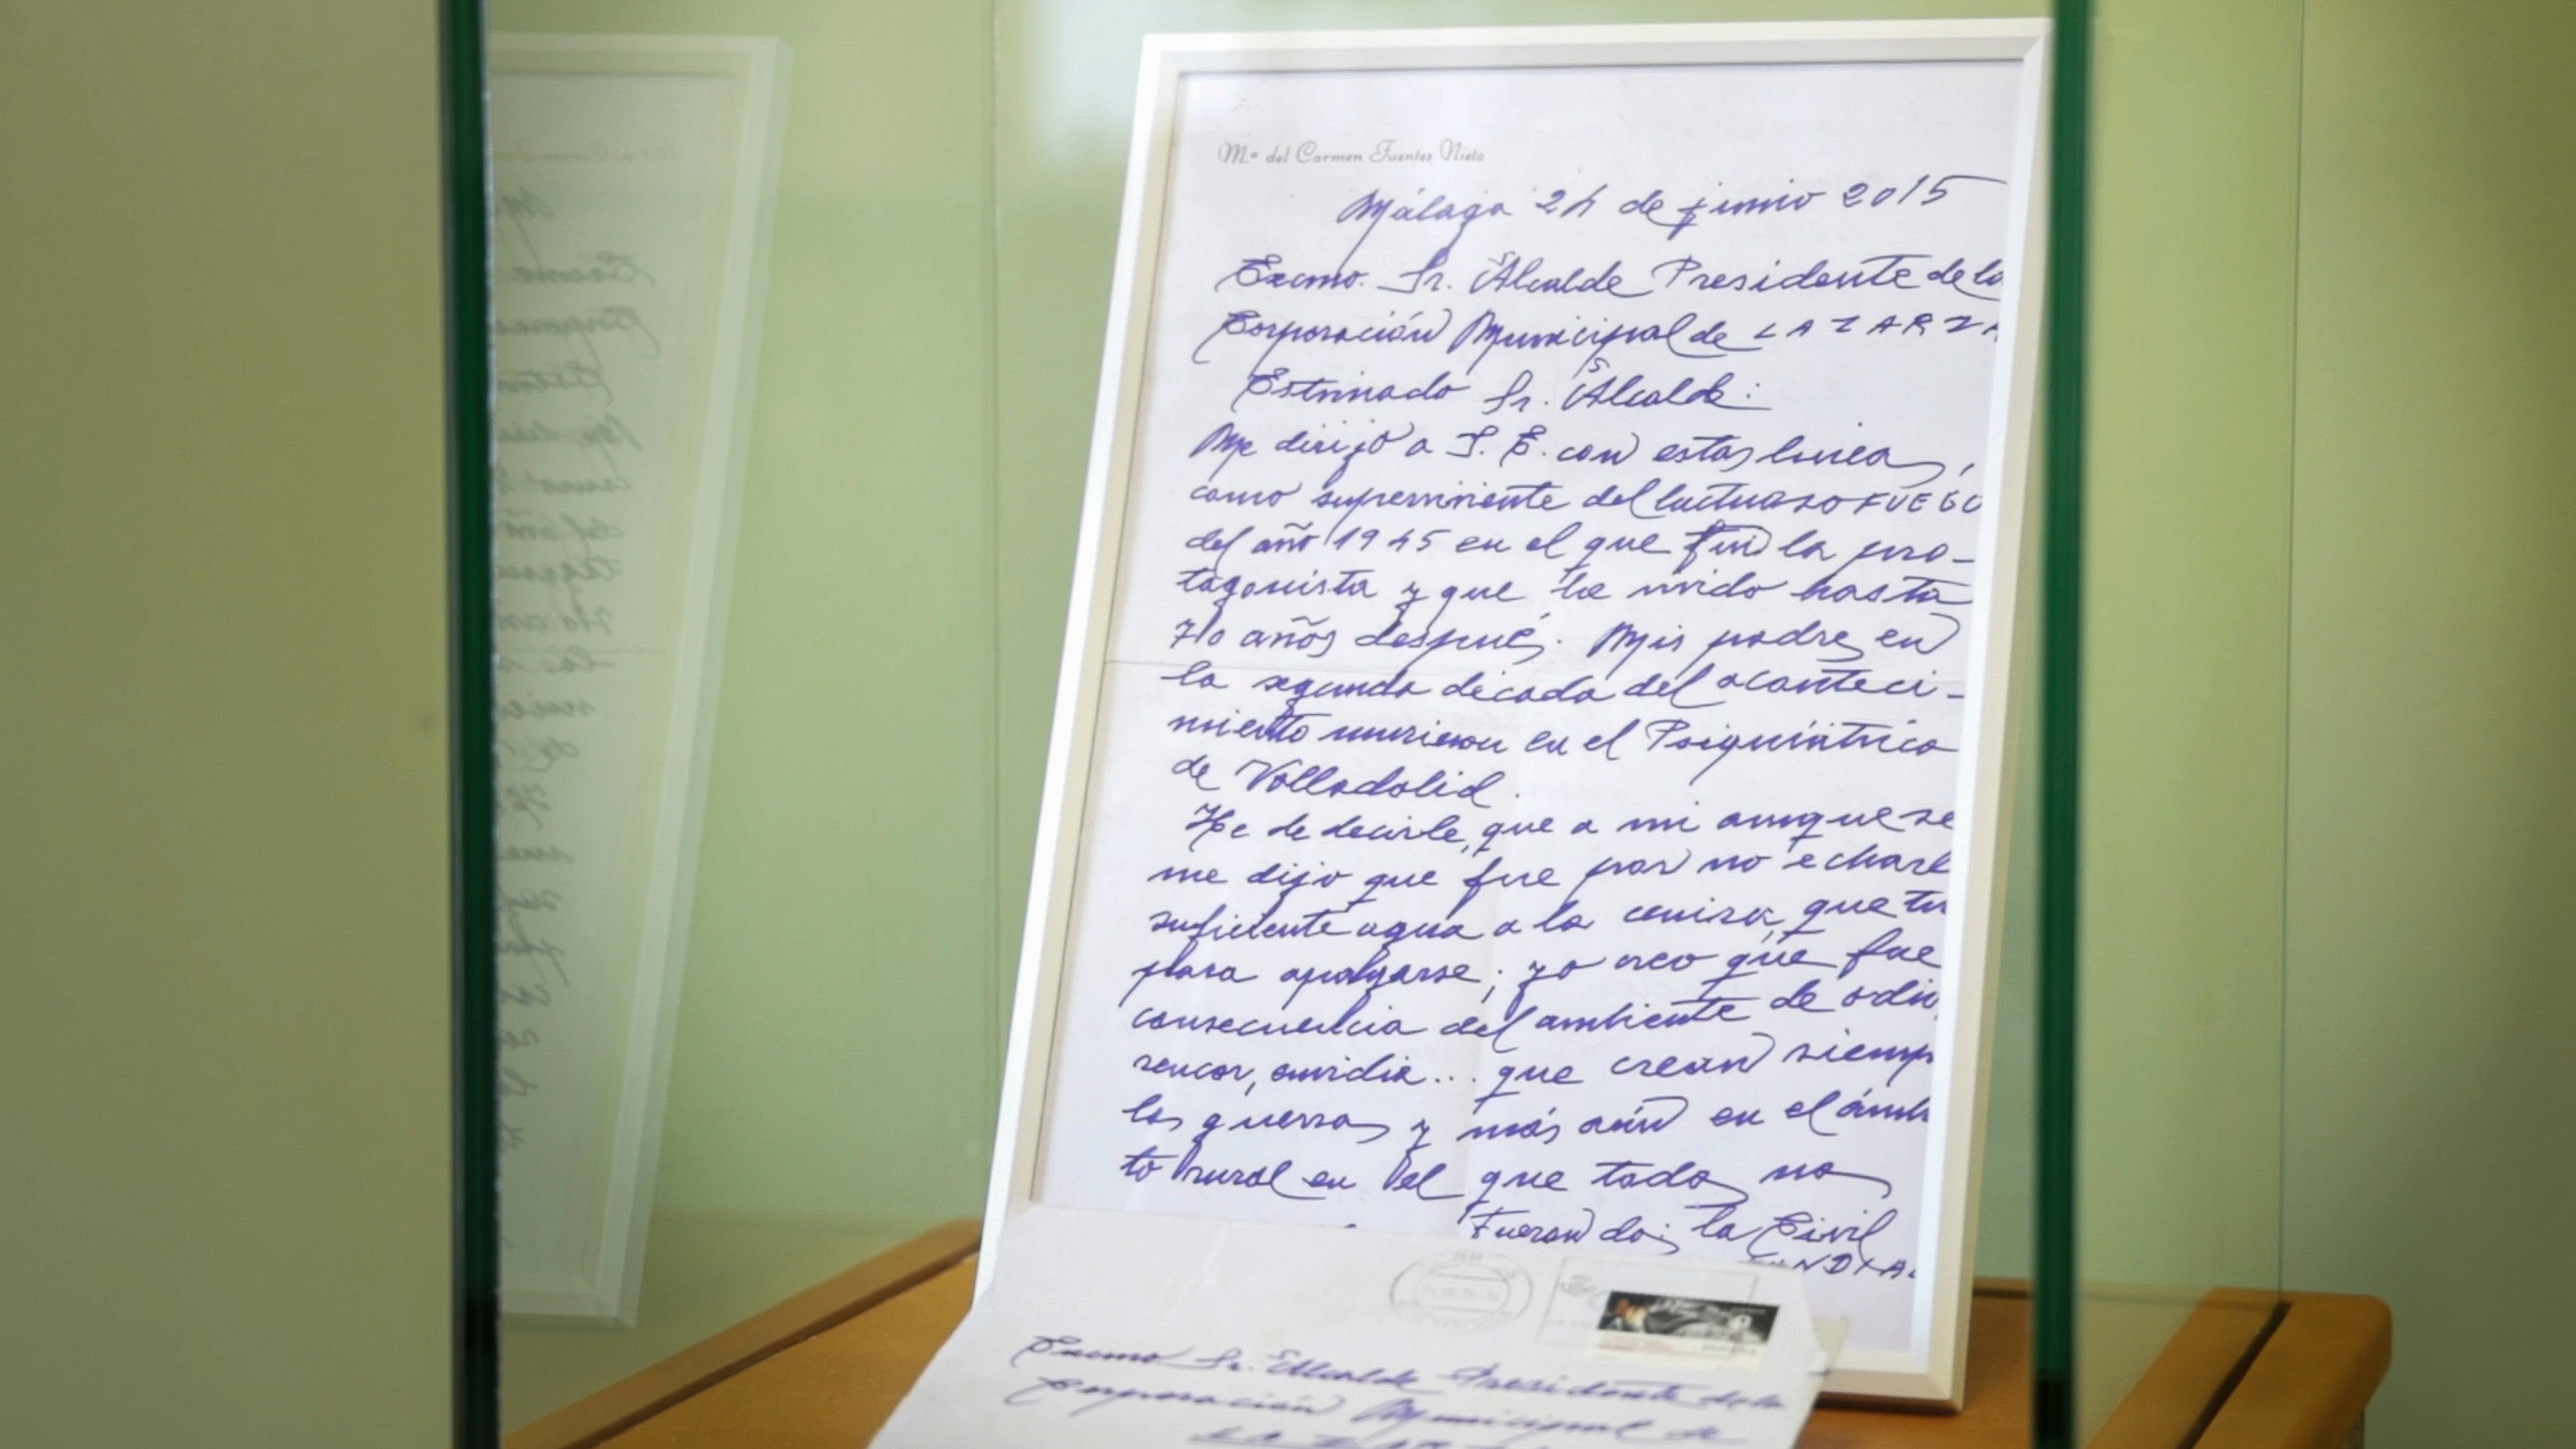 M.ª del Carmen Fuentes Nieto
Málaga 24 de junio 2015
Excmo. Sr. Alcalde Presidente de la
Corporación Municipal de LA ZARZA
Estimado Sr. Alcalde:
Me dirijo a S. E. con estas lineas,
como superviviente del luctuoso FUEGO
del año 1945 en el que fui la pro-
tagonista y que he vivido hasta
70 años después. Mis padres en
la segunda década del aconteci-
miento murieron en el Psiquiátrico
de Valladolid.
He de decirle, que a mi aunque se
me dijo que fue por no echarle
suficiente agua a la ceniza, que
para apagarse; yo creo que fue
consecuencia del ambiente de odio,
rencor, envidia... que crean siemp
las guerras y más aún en el ámbi
to rural en el que todas no
fueron dos; la Civil
Excmo Sr. Alcalde Presidente de la
Corporación Municipal de